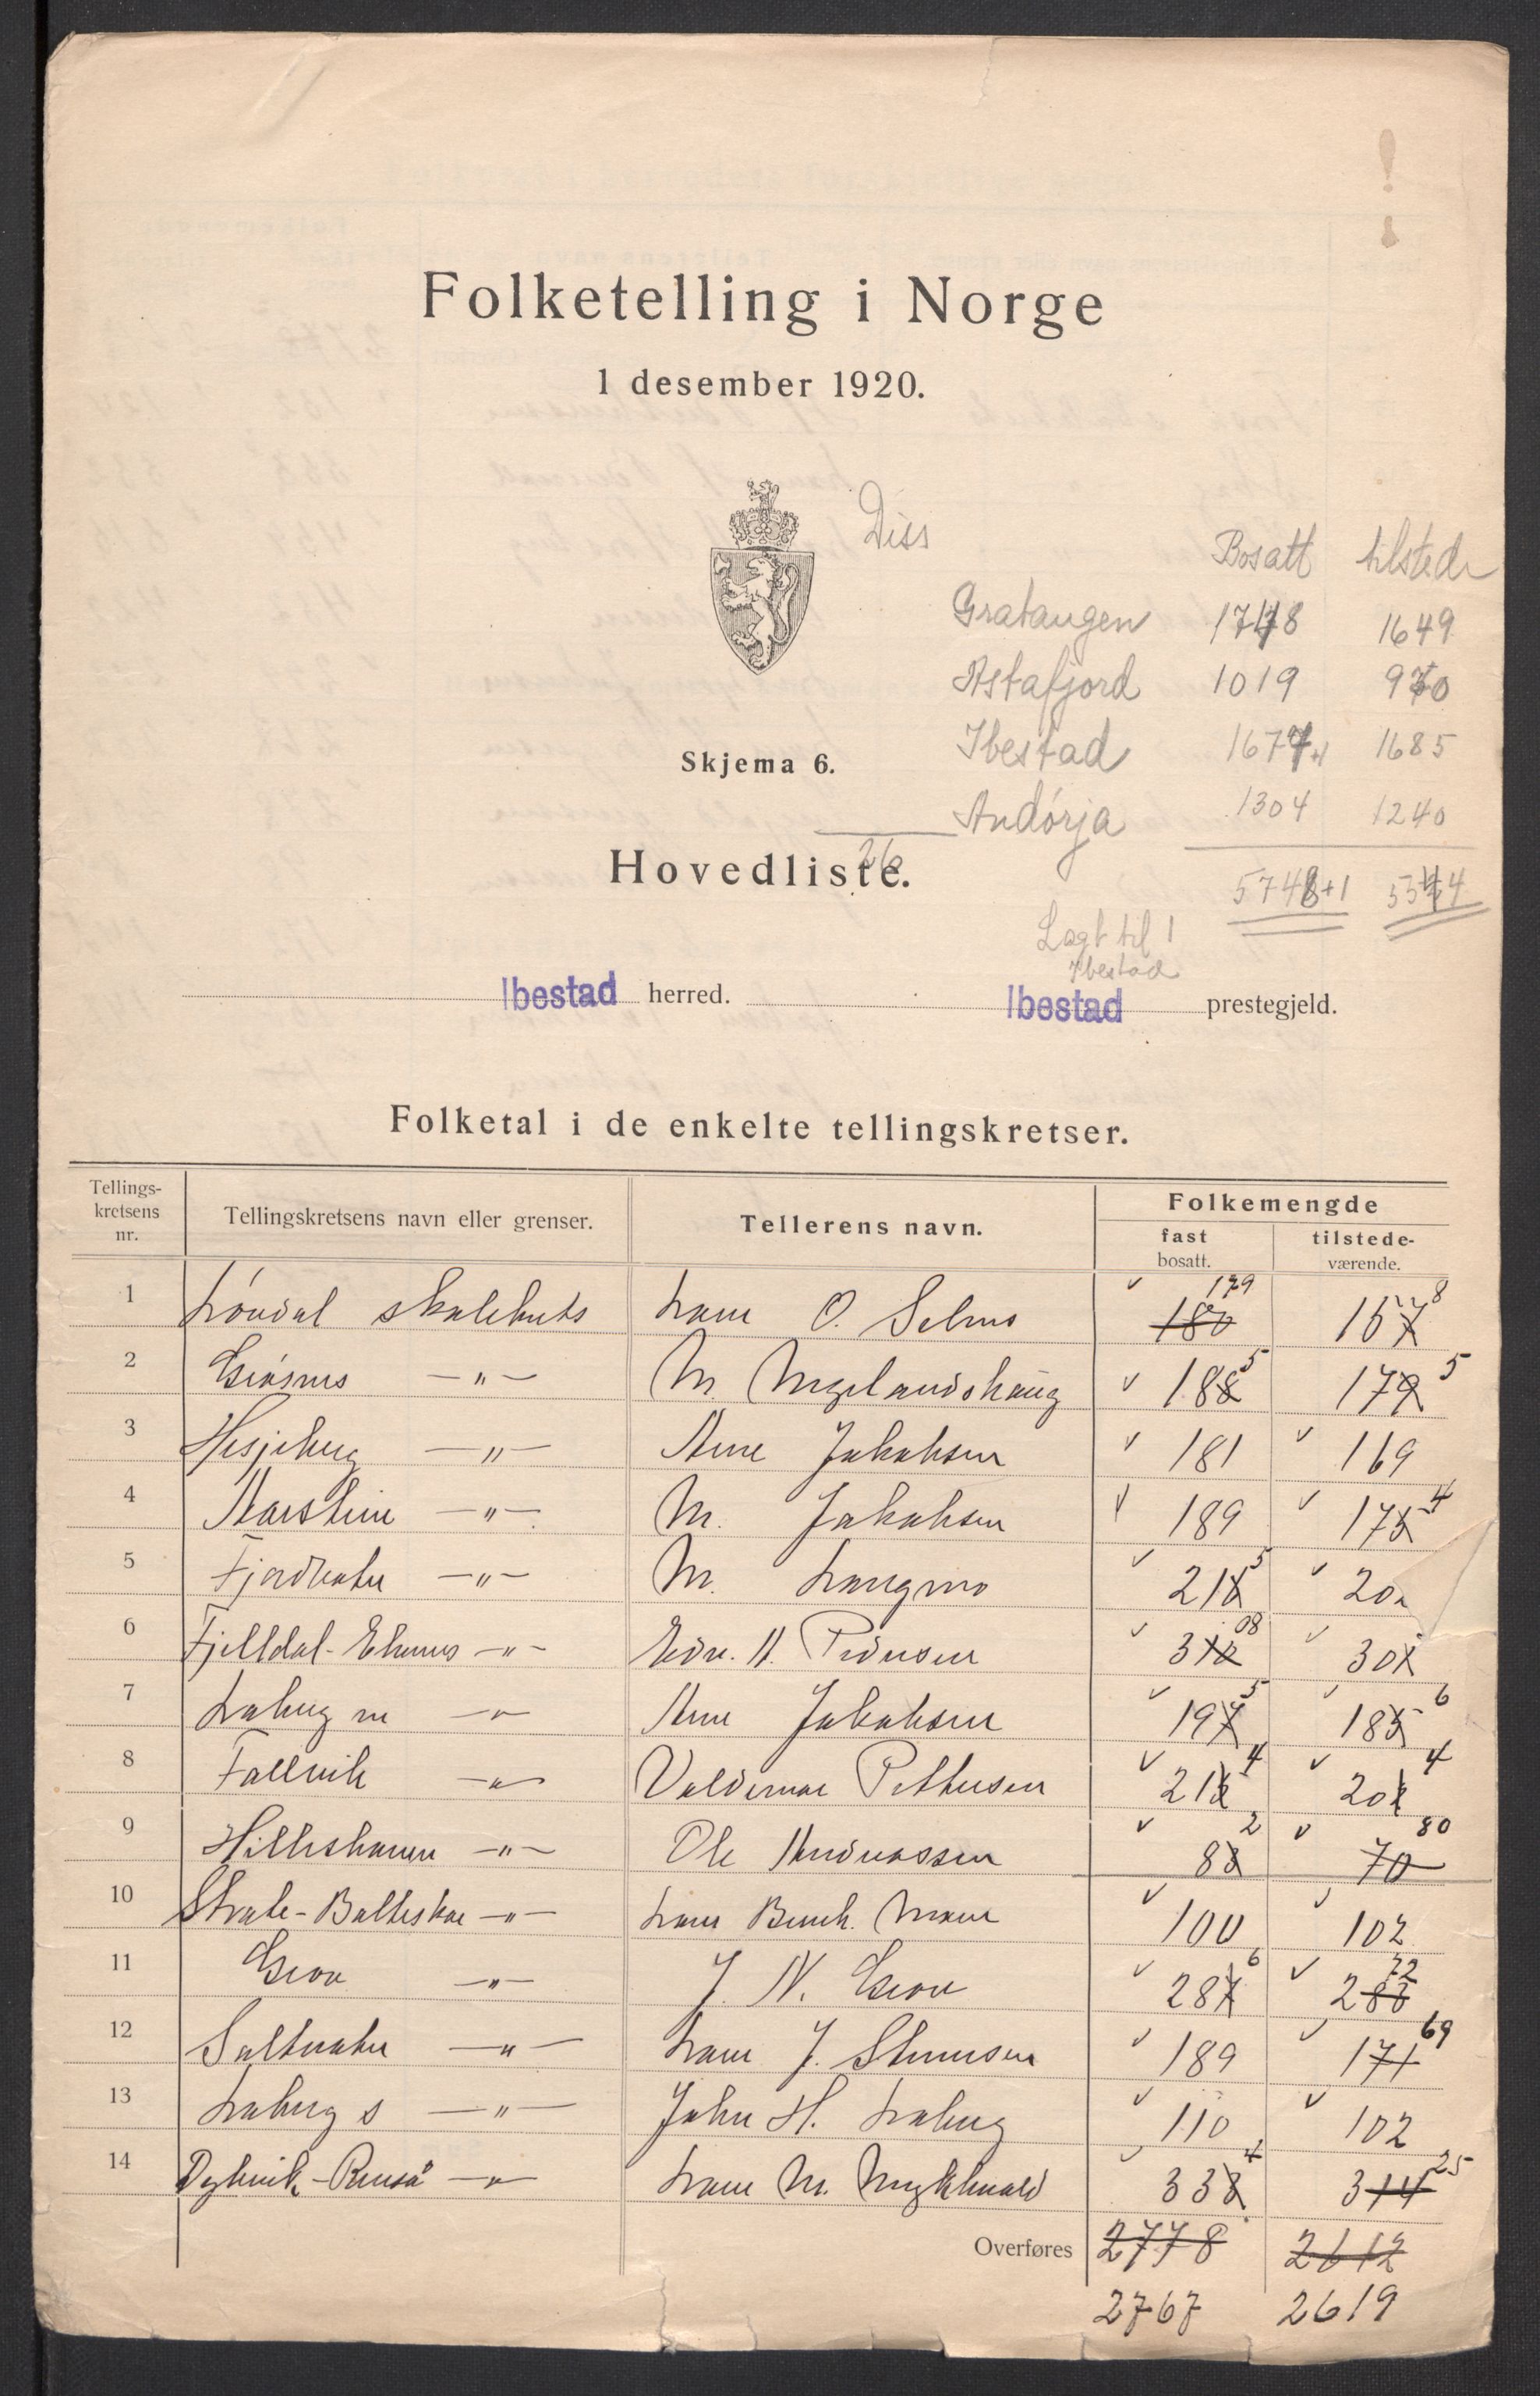 Folketelling i Norge
1 desember 1920.
Diss
Bosatt tilstede
Gratangen 1748 1649
Astafjord 1019 970
Ibestad 1677 1685
Andörja 1304 1240
5748+1 5544
Skjema 6.
26
Hovedliste.
Lagt til 1
Ibestad
Ibestad herred. Ibestad prestegjeld.
Folketal i de enkelte tellingskretser.
Tellings-
kretsens
nr.
Tellingskretsens navn eller grenser.
Tellerens navn.
Folkemengde
fast
bosatt.
tilstede-
værende.
1 skolekrets O. Selnes 180 179 157 8
2 —"— M. 188 5 179 5
3 Hesjeberg —"— Arne Jakobsen 181 169
4 Aarstein —"— M. Jakobsen 189 175 4
5 Fjordbotn —"— M. Langmo 216 5 20
6 Fjelldal- —"— Edv. A. Pedersen 310 08 301
7 Laberg n —"— Arne Jakobsen 197 5 185 6
8 Foldvik —"— Valdemar Pettersen 215 4 201 4
9 Hilleshamn —"— Ole Andreassen 83 2 70 80
10 —"— 100 102
11 Grov —"— J. N. Grov 287 6 280 72
12 Saltvatn —"— J. 189 171 69
13 Laberg s —"— John H. Laberg 110 102
14 —"— M. Myklevold 338 4 314 25
Overføres 2778 2612
2767 2619